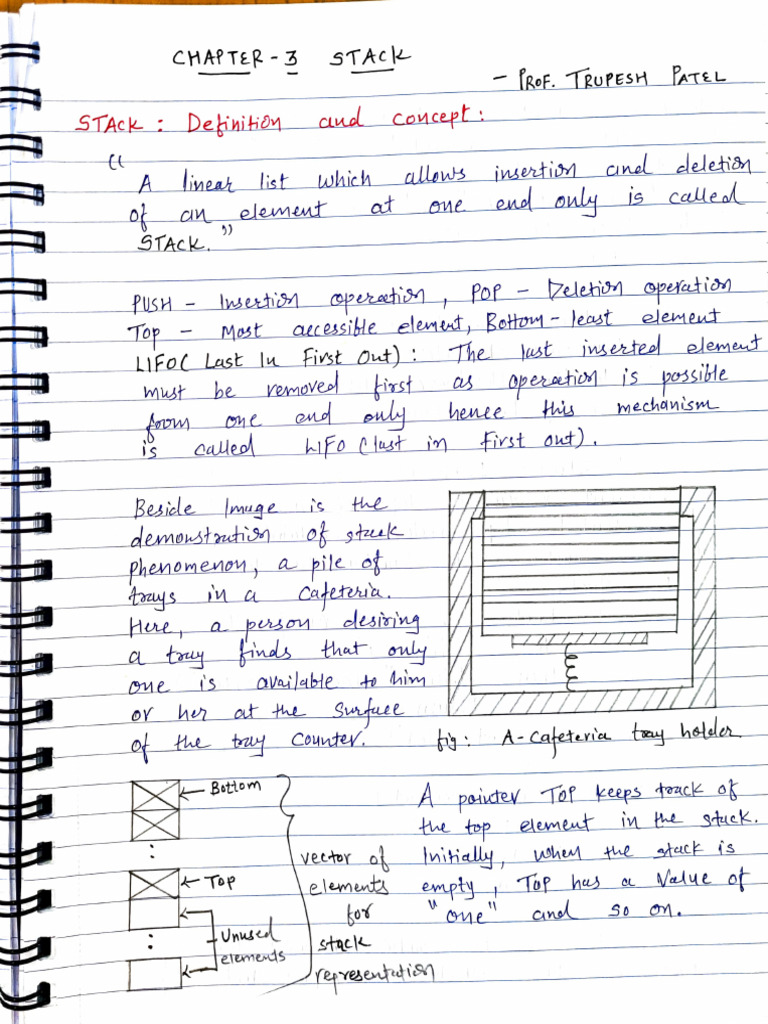 CHAPTER - 3 STACK
- PROF. TRUPESH PATEL
STACK : Definition and concept :
"
A linear list which allows insertion and deletion
of an element at one end only is called
STACK."
PUSH - Insertion operation, POP - Deletion operation
Top - Most accessible element, Bottom - least element
LIFO( Last In First Out) : The last inserted element
must be removed first as operation is possible
from one end only hence this mechanism
is called LIFO (last in First out).
Beside Image is the
demonstration of stack
phenomenon, a pile of
trays in a cafeteria.
Here, a person desiring
a tray finds that only
one is available to him
or her at the surface
of the tray counter.
fig: A-Cafeteria tray holder
Bottom
:
Top
Unused
elements
:
vector of
elements
for
stack
representation
A pointer TOP keeps track of
the top element in the stack.
Initially, when the stack is
empty, TOP has a value of
"one" and so on.